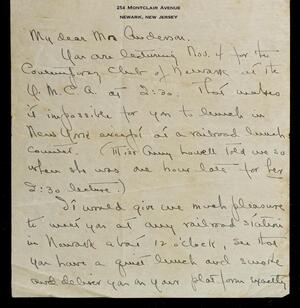 254 MONTCLAIR AVENUE
NEWARK, NEW JERSEY
My dear Mr. Anderson.
You are lecturing Nov. 4 for the
Contemporary Club of Newark at the
Y. M. C. A. at 2:30. That makes
it impossible for you to lunch in
New York except at a railroad lunch
counter. (Miss Amy Lowell told me so
when she was one hour late - for her
2:30 lecture.)
It would give me much pleasure
to meet you at any railroad station
in Newark about 12 o'clock, see that
you have a quiet lunch and smoke
and deliver you on your platform exactly